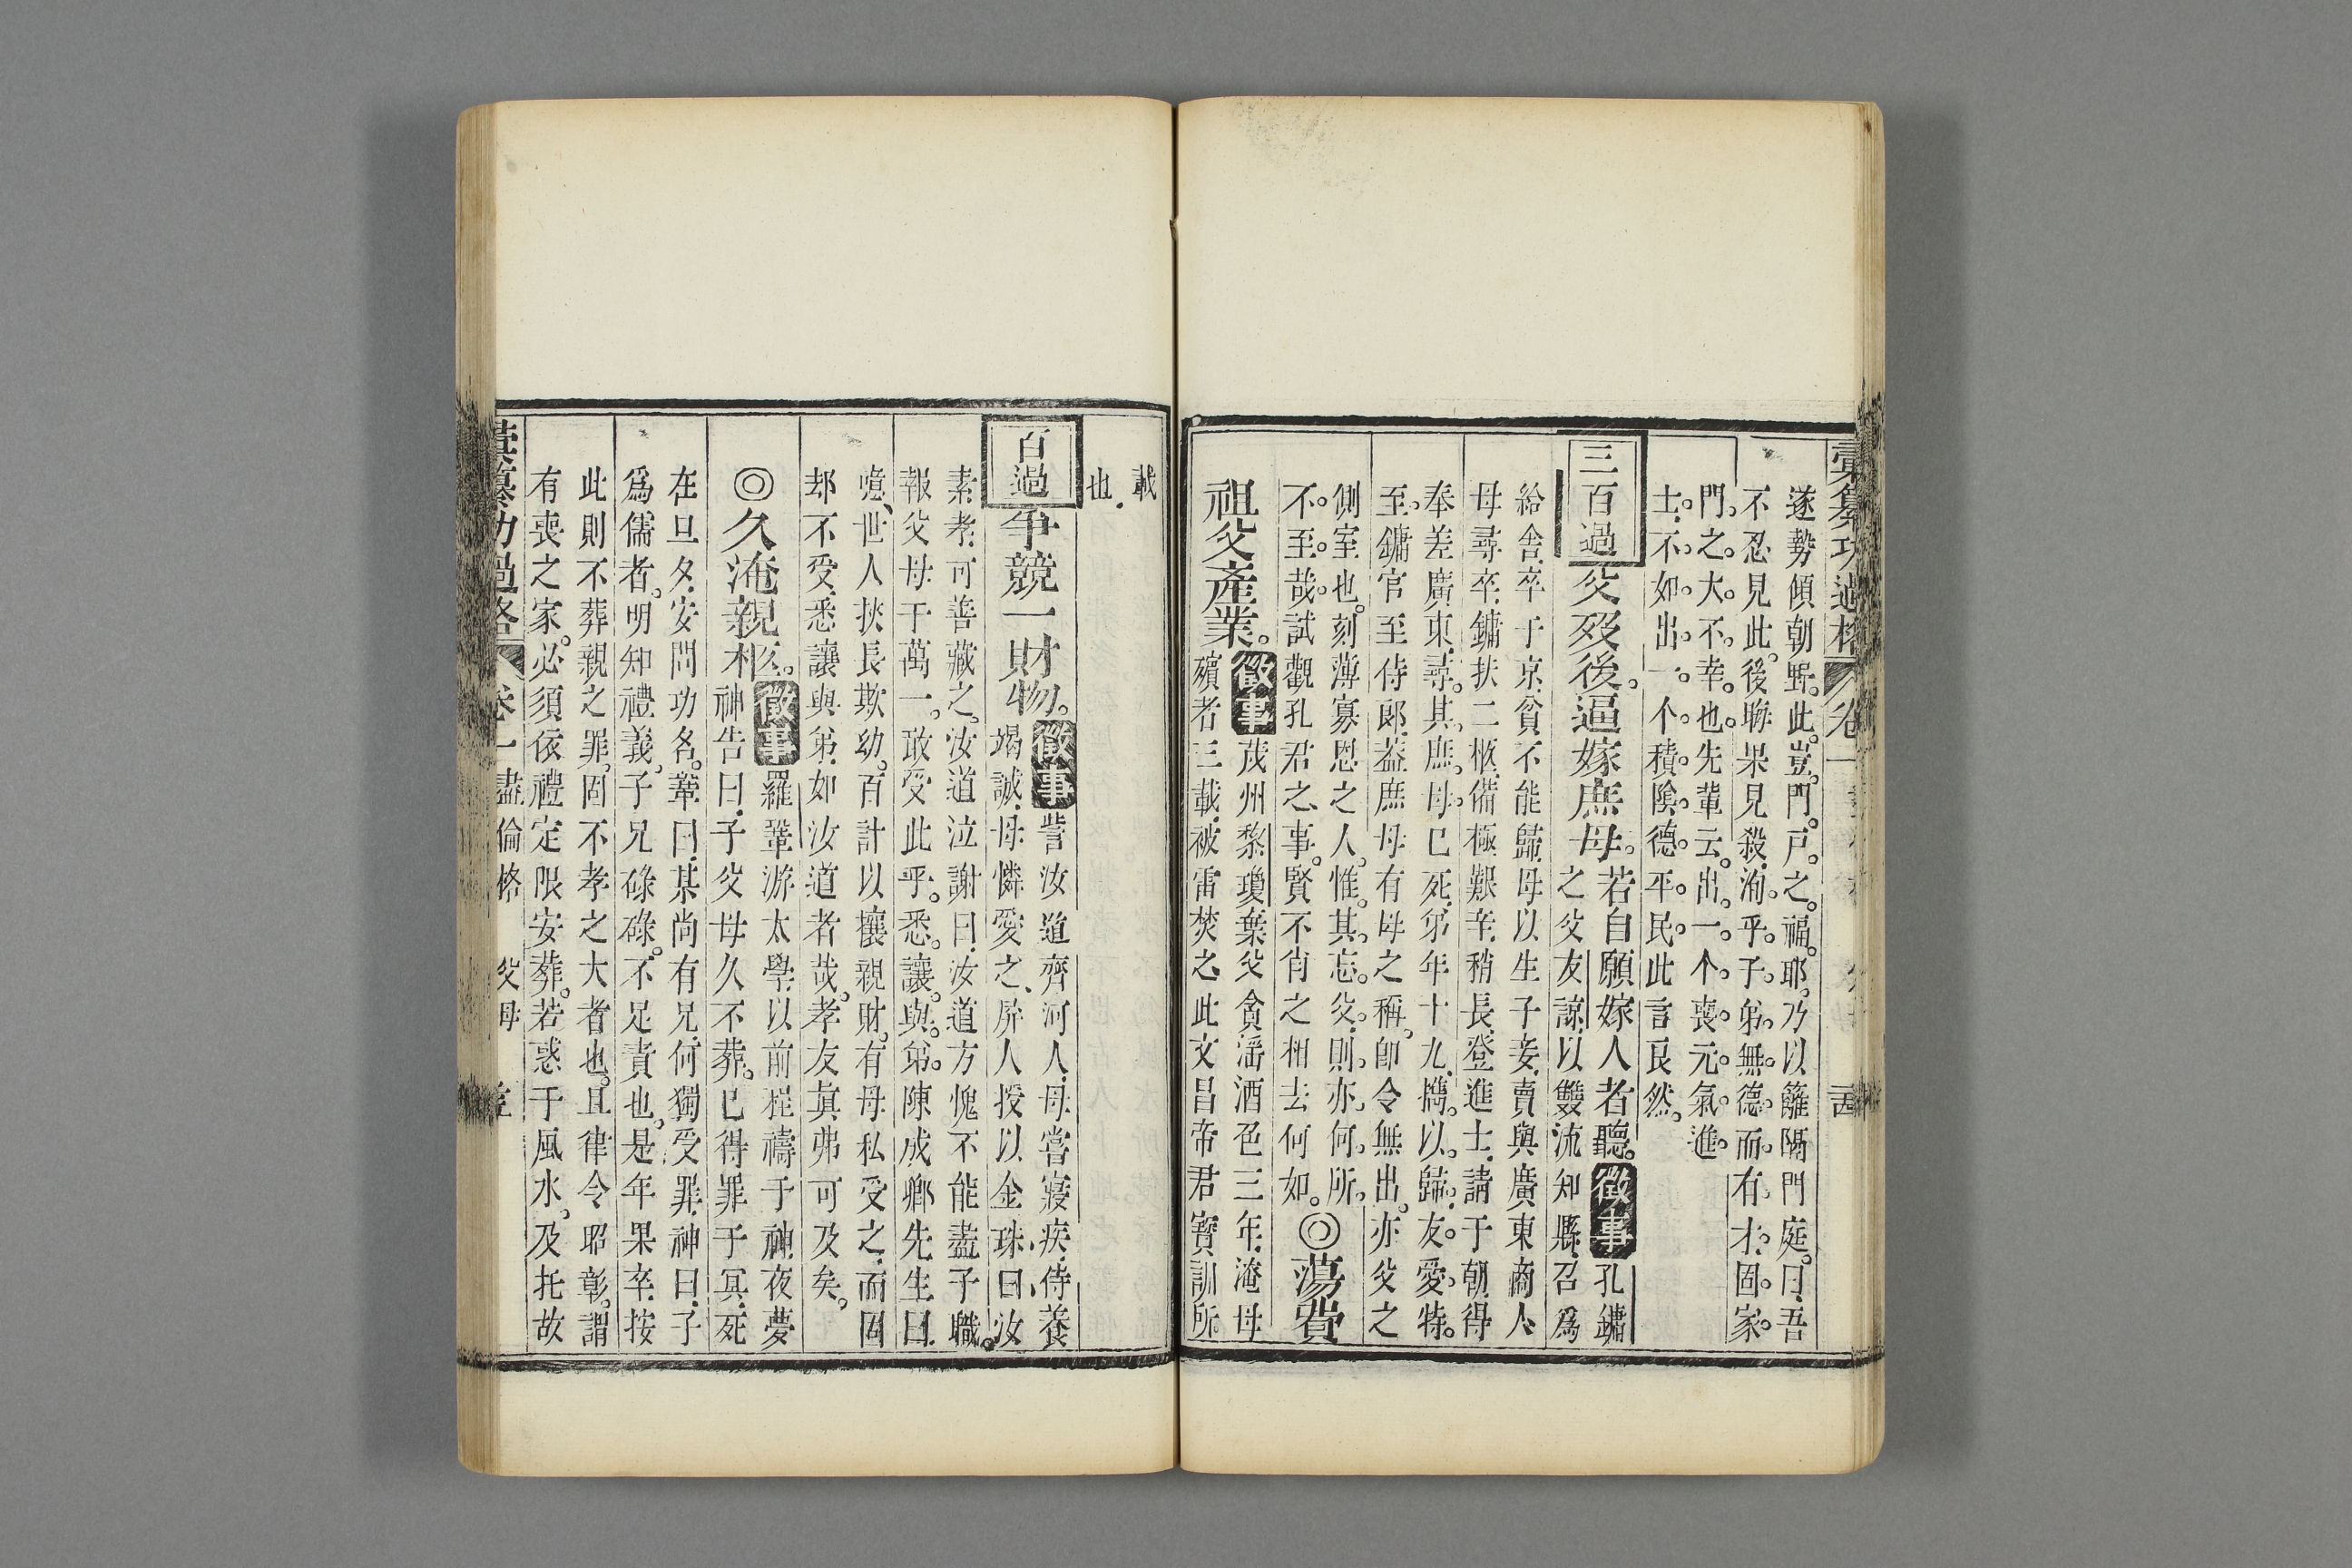 彙纂功過格 卷一
遂勢傾朝野。此豈門戶之福耶。乃以籬隔門庭。曰吾
不忍見此。後晦果見殺。洵乎子弟無德而有才。固家
門之大不幸也。先輩云。出一个喪元氣進
士。不如出一个積陰德平民。此言良然。
三百過
父歿後。逼嫁庶母。若自願嫁人者聽。徵事 孔鏞
之父友諒。以雙流知縣召為
給舍。卒于京。貧不能歸。母以生子妾賣與廣東商人。
母尋卒。鏞扶二柩。備極艱辛。稍長登進士。請于朝。得
奉差廣東。尋其庶母。已死。弟年十九。攜以歸。友愛特
至。鏞官至侍郎。蓋庶母有母之稱。卽令無出。亦父之
側室也。刻薄寡恩之人。惟其忘父。則亦何所
不至哉。試觀孔君之事。賢不肖之相去何如。◎蕩費
祖父產業。徵事 茂州黎瓊。葉父貪淫酒色三年。淹母
殯者三載。被雷焚之。此文昌帝君寶訓所
載
也。
百過
爭競一財物。徵事 訾汝道齊河人。母嘗寢疾。侍養
竭誠。母憐愛之。屏人授以金珠曰。汝
素孝。可善藏之。汝道泣謝曰。汝道方愧不能盡子職。
報父母于萬一。敢受此乎。悉讓與弟。陳成卿先生曰。
噫。世人挾長欺幼。百計以攘親財。有母私受之。而固
却不受。悉讓與弟。如汝道者哉。孝友真弗可及矣。
◎久淹親柩。徵事 羅鞏游太學。以前程禱于神。夜夢
神告曰。子父母久不葬。已得罪于冥。死
在旦夕。安問功名。鞏曰。某尚有兄。何獨受罪。神曰。子
為儒者。明知禮義。子兄碌碌。不足責也。是年果卒。按
此則不葬親之罪。固不孝之大者也。且律令昭彰。謂
有喪之家。必須依禮定限安葬。若惑于風水。及托故
彙纂功過格 卷一 盡倫格 父母